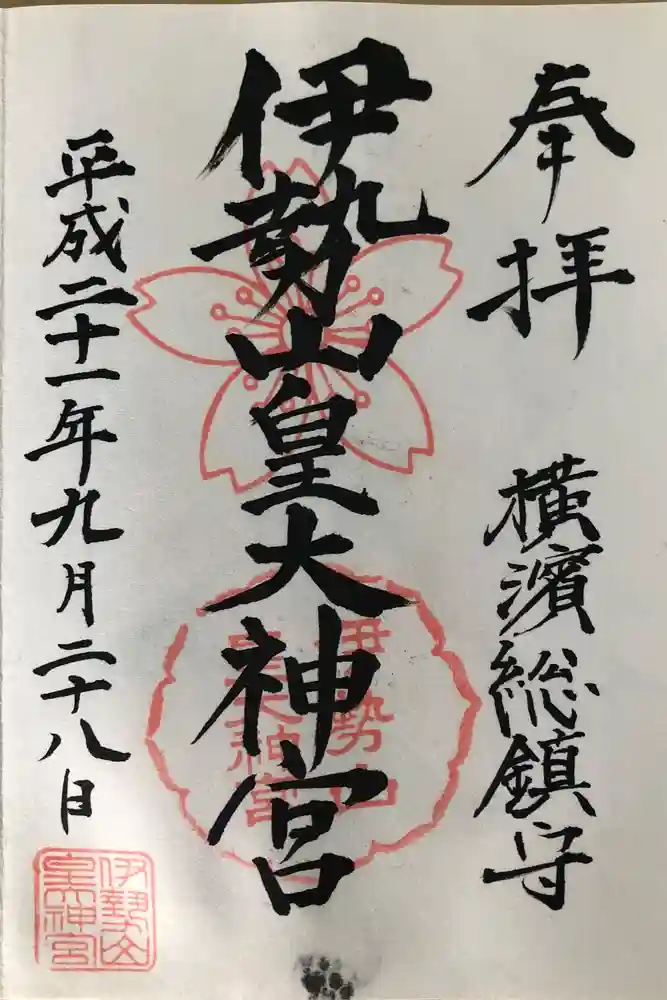 奉拝
横濱総鎮守
伊勢山皇大神宮
平成二十一年九月二十八日
伊勢山
皇大神宮
伊勢山
皇大神宮